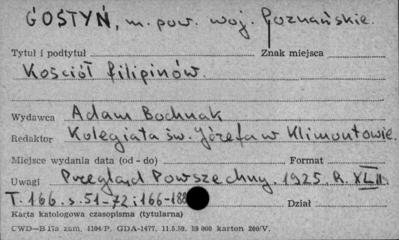 GOSTYŃ, m. pow. woj. Poznańskie.
Tytuł i podtytuł Znak miejsca
Kościół filipinów.
Wydawca Adam Bochnak
Redaktor Kolegiata św. Józefa w Klimontowie.
Miejsce wydania data (od - do) Format
Uwagi Przegląd Powszechny. 1925. R. XLII.
T. 166. s. 51-72; 166-188 Dział
Karta katologowa czasopisma (tytularna)
CWD—B 17a zam. 1104/P. GDA-1477, 11.5.59. 19 000 karton 200/V.